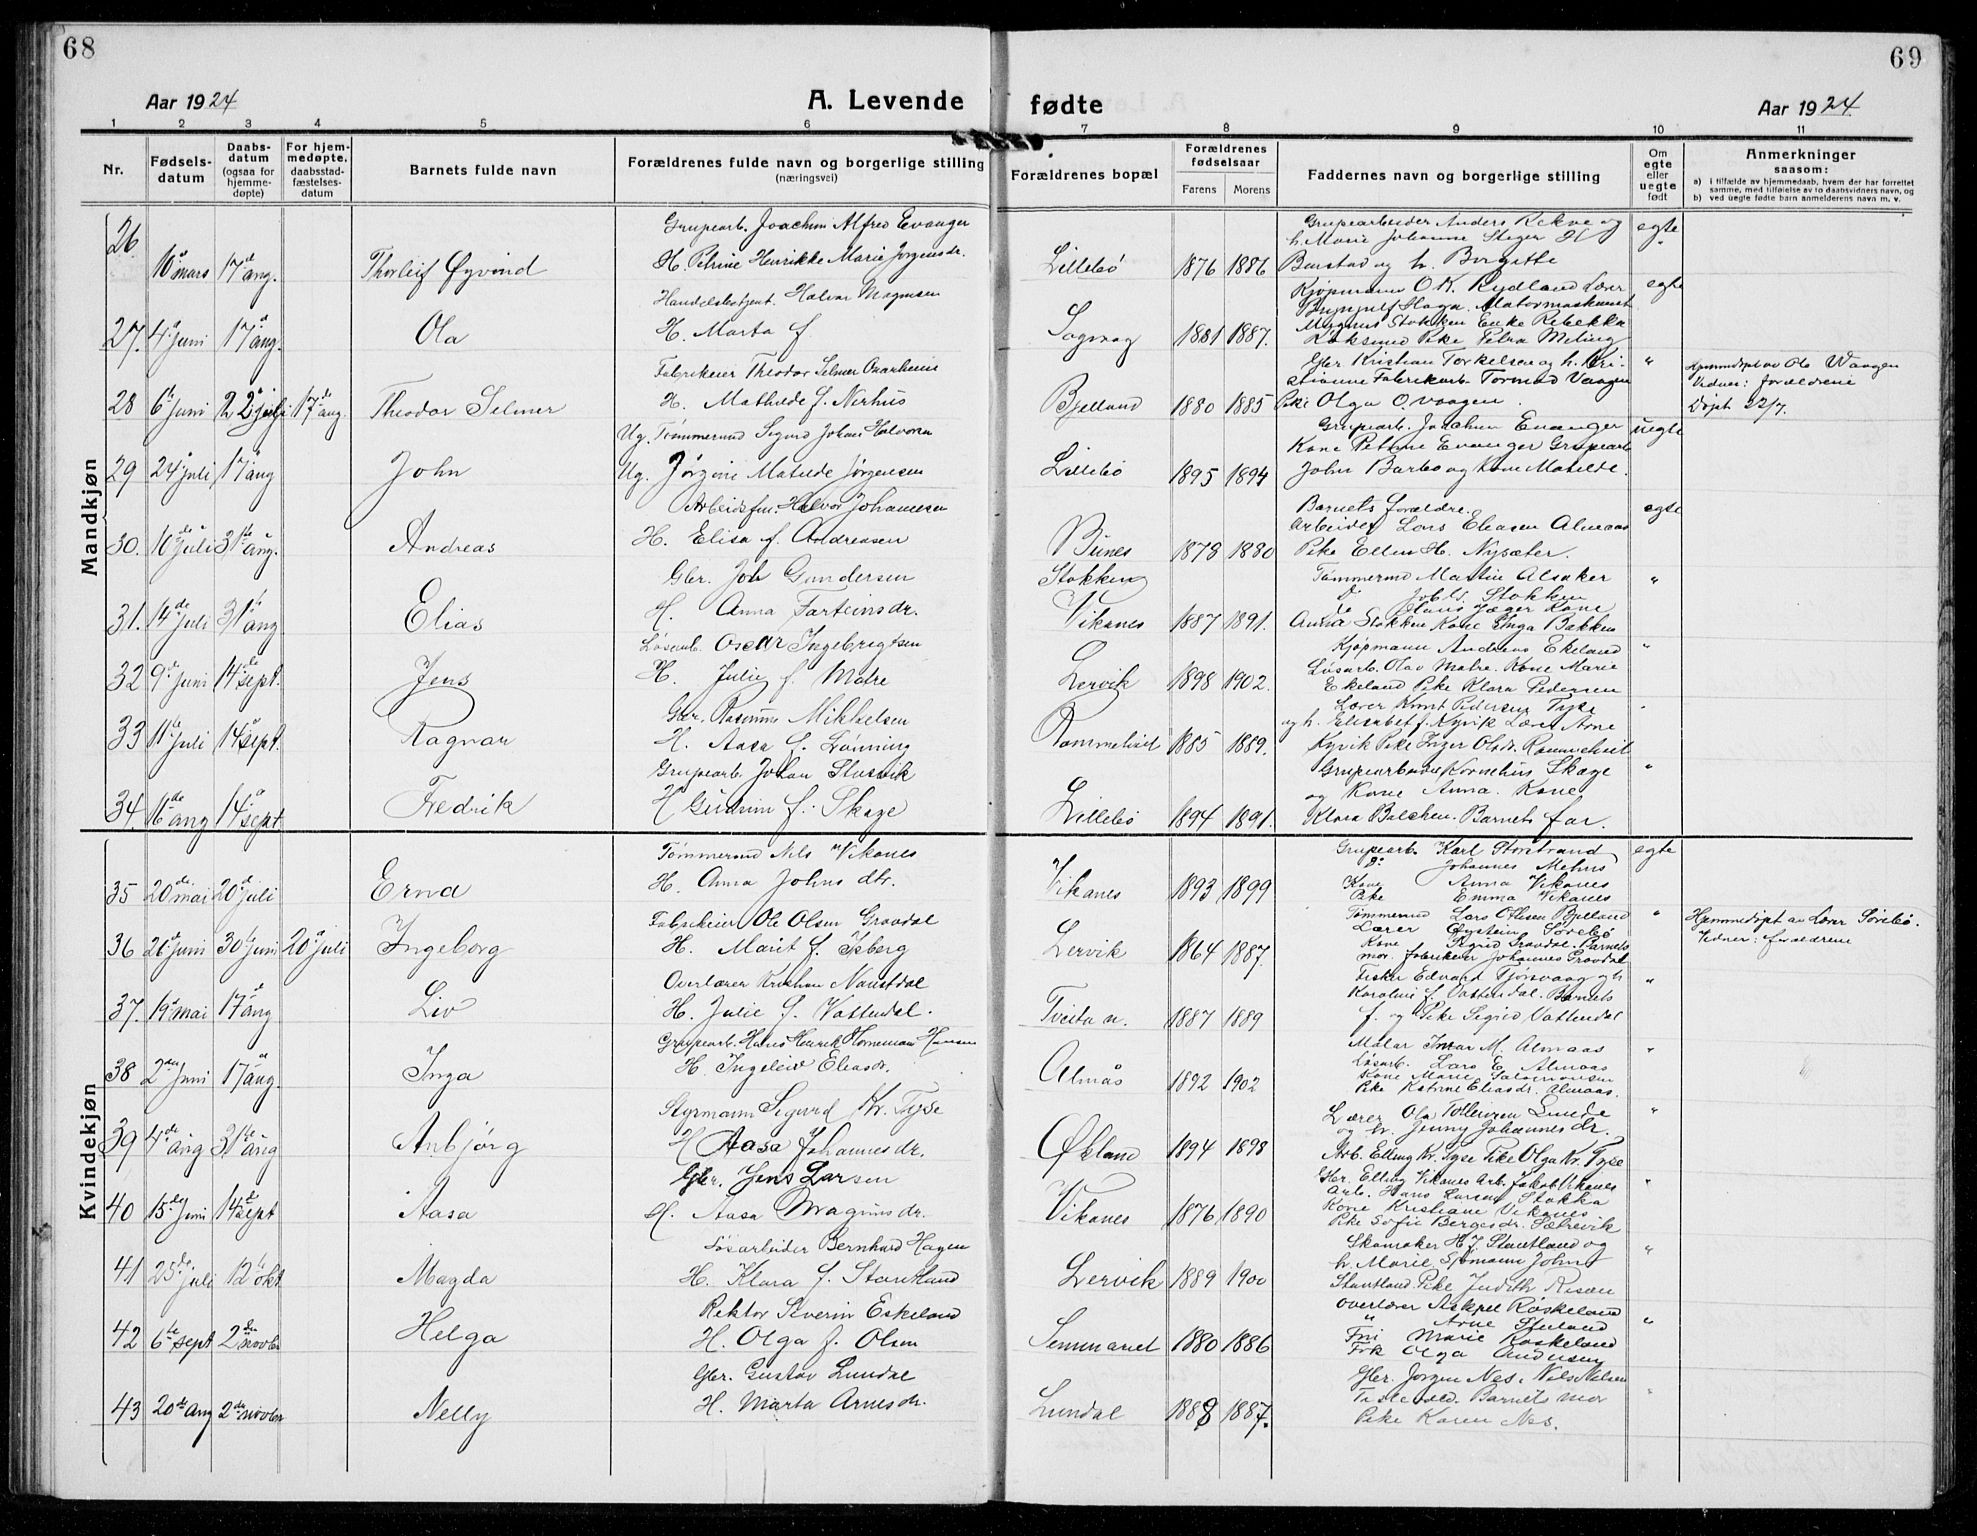 68
69
Aar 1924
A. Levende fødte
Aar 1924.
1 2 3 4 5 6 7 8 9 10 11
Nr.
Fødsels-
datum
Daabs-
datum
(ogsaa for
hjemme-
døpte)
For hjem-
medøpte,
daabsstad-
fæstelses-
datum
Barnets fulde navn
Forældrenes fulde navn og borgerlige stilling
(næringsvei)
Forældrenes bopæl
Forældrenes
fødselsaar
Farens Morens
Faddernes navn og borgerlige stilling
Om
egte
eller
uegte
født
Anmerkninger
saasom:
a) i tilfælde av hjemmedaab, hvem der har forrettet
samme, med tilføielse av to daabsvidners navn, og
b) ved uegte fødte barn anmelderens navn m. v.
Mandkjøn
Grupearb. Joachim Alfred Evanger
Grupearbeider Anders Rekve og
26. egte
h. Marie Johanne Steger H
16 mars 17 aug. Thorleif Øyvind H. Petrine Henrikke Marie Jørgensdr. Lillebø 1876 1886 Burstad og h. Borgatte
Handelsbetjent Halvar Magnusen
Kjøpmann O K Rydland Lærer egte
Motormaskinist
27. 4 juni 17 aug. Ola H. Marta f. Sagvåg 1881 1887. Magnus Stokken Enke Rebekka
Pike Petra Meling
Fabrikeier Theodor Selmer
Gbr Kristian Torkelsen og h. Kri- "
stianne Fabrikarb. Tormod Vaagen
Hjemmedøpt av Ole Waagen
Vidner: forældrene
28 6 juni 22 juli 17 aug. Theodor Selmer H. Mathilde f. Nerhus Bjelland 1880 1885 Pike Olga O. Vaagen. Døpt 22/7.
Ug. Tømmermd Sigurd Johan Halvorsen
Grupearb. Joachim Evanger uegte
Kone Petrine Evanger Grupearb
29 24 juli 17 aug John Ug. Jørgine Matilde Jørgensen Lillebø 1895 1894 John Barbo og Kone Matilde.
Arbeidsfm. Halvor Johannesen
Barnets forældre. egte
Arbeider Lars Eleasen Almaas
30. 16 juli 31 aug. Andreas H. Elisa f. Andreasen Bunes 1878 1880 Pike Ellen H. Nysæter.
Gbr. Joh Gundersen Stokken
Tømmermd Martin Alsaker "
Stokken
do Hans Jæger Kone
31. 14 juli 31 aug Elias H. Anna Farteinsdr. Vikanes 1887 1891. Anna Stokken Kone Inga Bakken
Løsarb. Oscar Ingebrigtsen
Kjøpmann Andreas Ekeland "
Løsarb. Olav Matre. Kone Marie
32 9 juni 14 sept. Jens H. Julie f. Matre Lervik 1898 1902. Ekeland Pike Klara Pedersen
Gbr. Rasmus Mikkelsen
Lærer Knut Pedersen Tyse "
og h. Elisabet f. Kyvik Lærer Arne
33 11 juli 14 sept. Ragnar H. Aasa f. Lønning Rommetveit 1885 1889. Kyvik Pike Inger Olsdr. Rommetveit
Grupearb Johan Stusvik
Grupearbeider Kornelius Skage "
og Kone Anna. Kone
34. 16 aug 14 sept Fredrik H Gudrun f. Skage Lillebø 1894 1891. Klara Balchen. Barnets far.
Kvindekjøn
Tømmermd Nils Vikanes
Grupearb. Karl Storstrand egte
do Johannes Mehus
Kone Anna Vikanes
35 20 mai 20 juli Erna H. Anna Johns dtr. Vikanes 1893 1899 Pike Emma Vikanes
Fabrikeier Ole Olsen Gravdal
Tømmermd Lars Olsen Bjelland "
Hjemmedøpt av Lærer Sørebø.
Lærer Øystein Sørebø
Vidner: forældrene
36 26 juni 30 juni 20 juli Ingeborg H. Marit f. Isberg Lervik 1864 1887. Kone Sigrid Gravdal. Barnets
mor. fabrikeier Johannes Gravdal
Overlærer Kristian Naustdal
Fisker Edvard Tjørsvaag og h "
Karoline f. Vattendal. Barnets
37. 19 mai 17 aug Liv H. Julie f. Vattendal. Tveita n. 1887 1889 f. og Pike Sigrid Vattendal
Grupearb. Hans Henrik Hornemann Hansen
Malar M. Almaas "
Løsarb. Lars E. Almaas
38 2 juni 17 aug. Inga H. Ingeleiv Eleasdr. Almås 1892 1902 Kone Marie Salomonsen
Pike Katrine Eliasdr. Almaas.
Styrmann Sigurd Kr. Tyse
Lærer Ola Tollevsen Lunde "
og h. Jenny Johannesdr.
39 4 aug 31 aug Anbjørg H Aasa Johannesdr. Økland 1894 1898 Arb. Elling Kr. Tyse Pike Olga Kr. Tyse
Gbr. Jens Larsen
Gbr. Elling Vikanes Arb. Jakob Vikanes "
Arb. Hans Larsen Stokka
40 15 juni 14 sept Aasa H. Aasa Magnusdr. Vikanes 1876 1890 Kone Kristiane Vikanes.
Pike Sofie Bergesdr. Sætrevik
Løsarbeider Bernhard Hagen
Skomaker H. J. Stautland og "
h. Marie Sjømann Johns
41 25 juli 12 okt. Magda H. Klara f. Stautland Lervik 1889 1900 Stautland Pike Judith Risøen
Rektor Severin Eskeland
Overlærer Askjel Røskeland
" Arne "
42 6 sept 2 novbr Helga H. Olga f. Olsen Seminariet 1880 1886 Fru Marie Røskeland
Frk Olga Andersen
Gbr. Gustav Lundal
Gbr. Jørgen Nes. Nils Nilsen "
Barnets mor
43 20 aug 2 novbr Nelly H. Marta Arnesdr. Lundal 1888 1887. Pike Karen Nes.